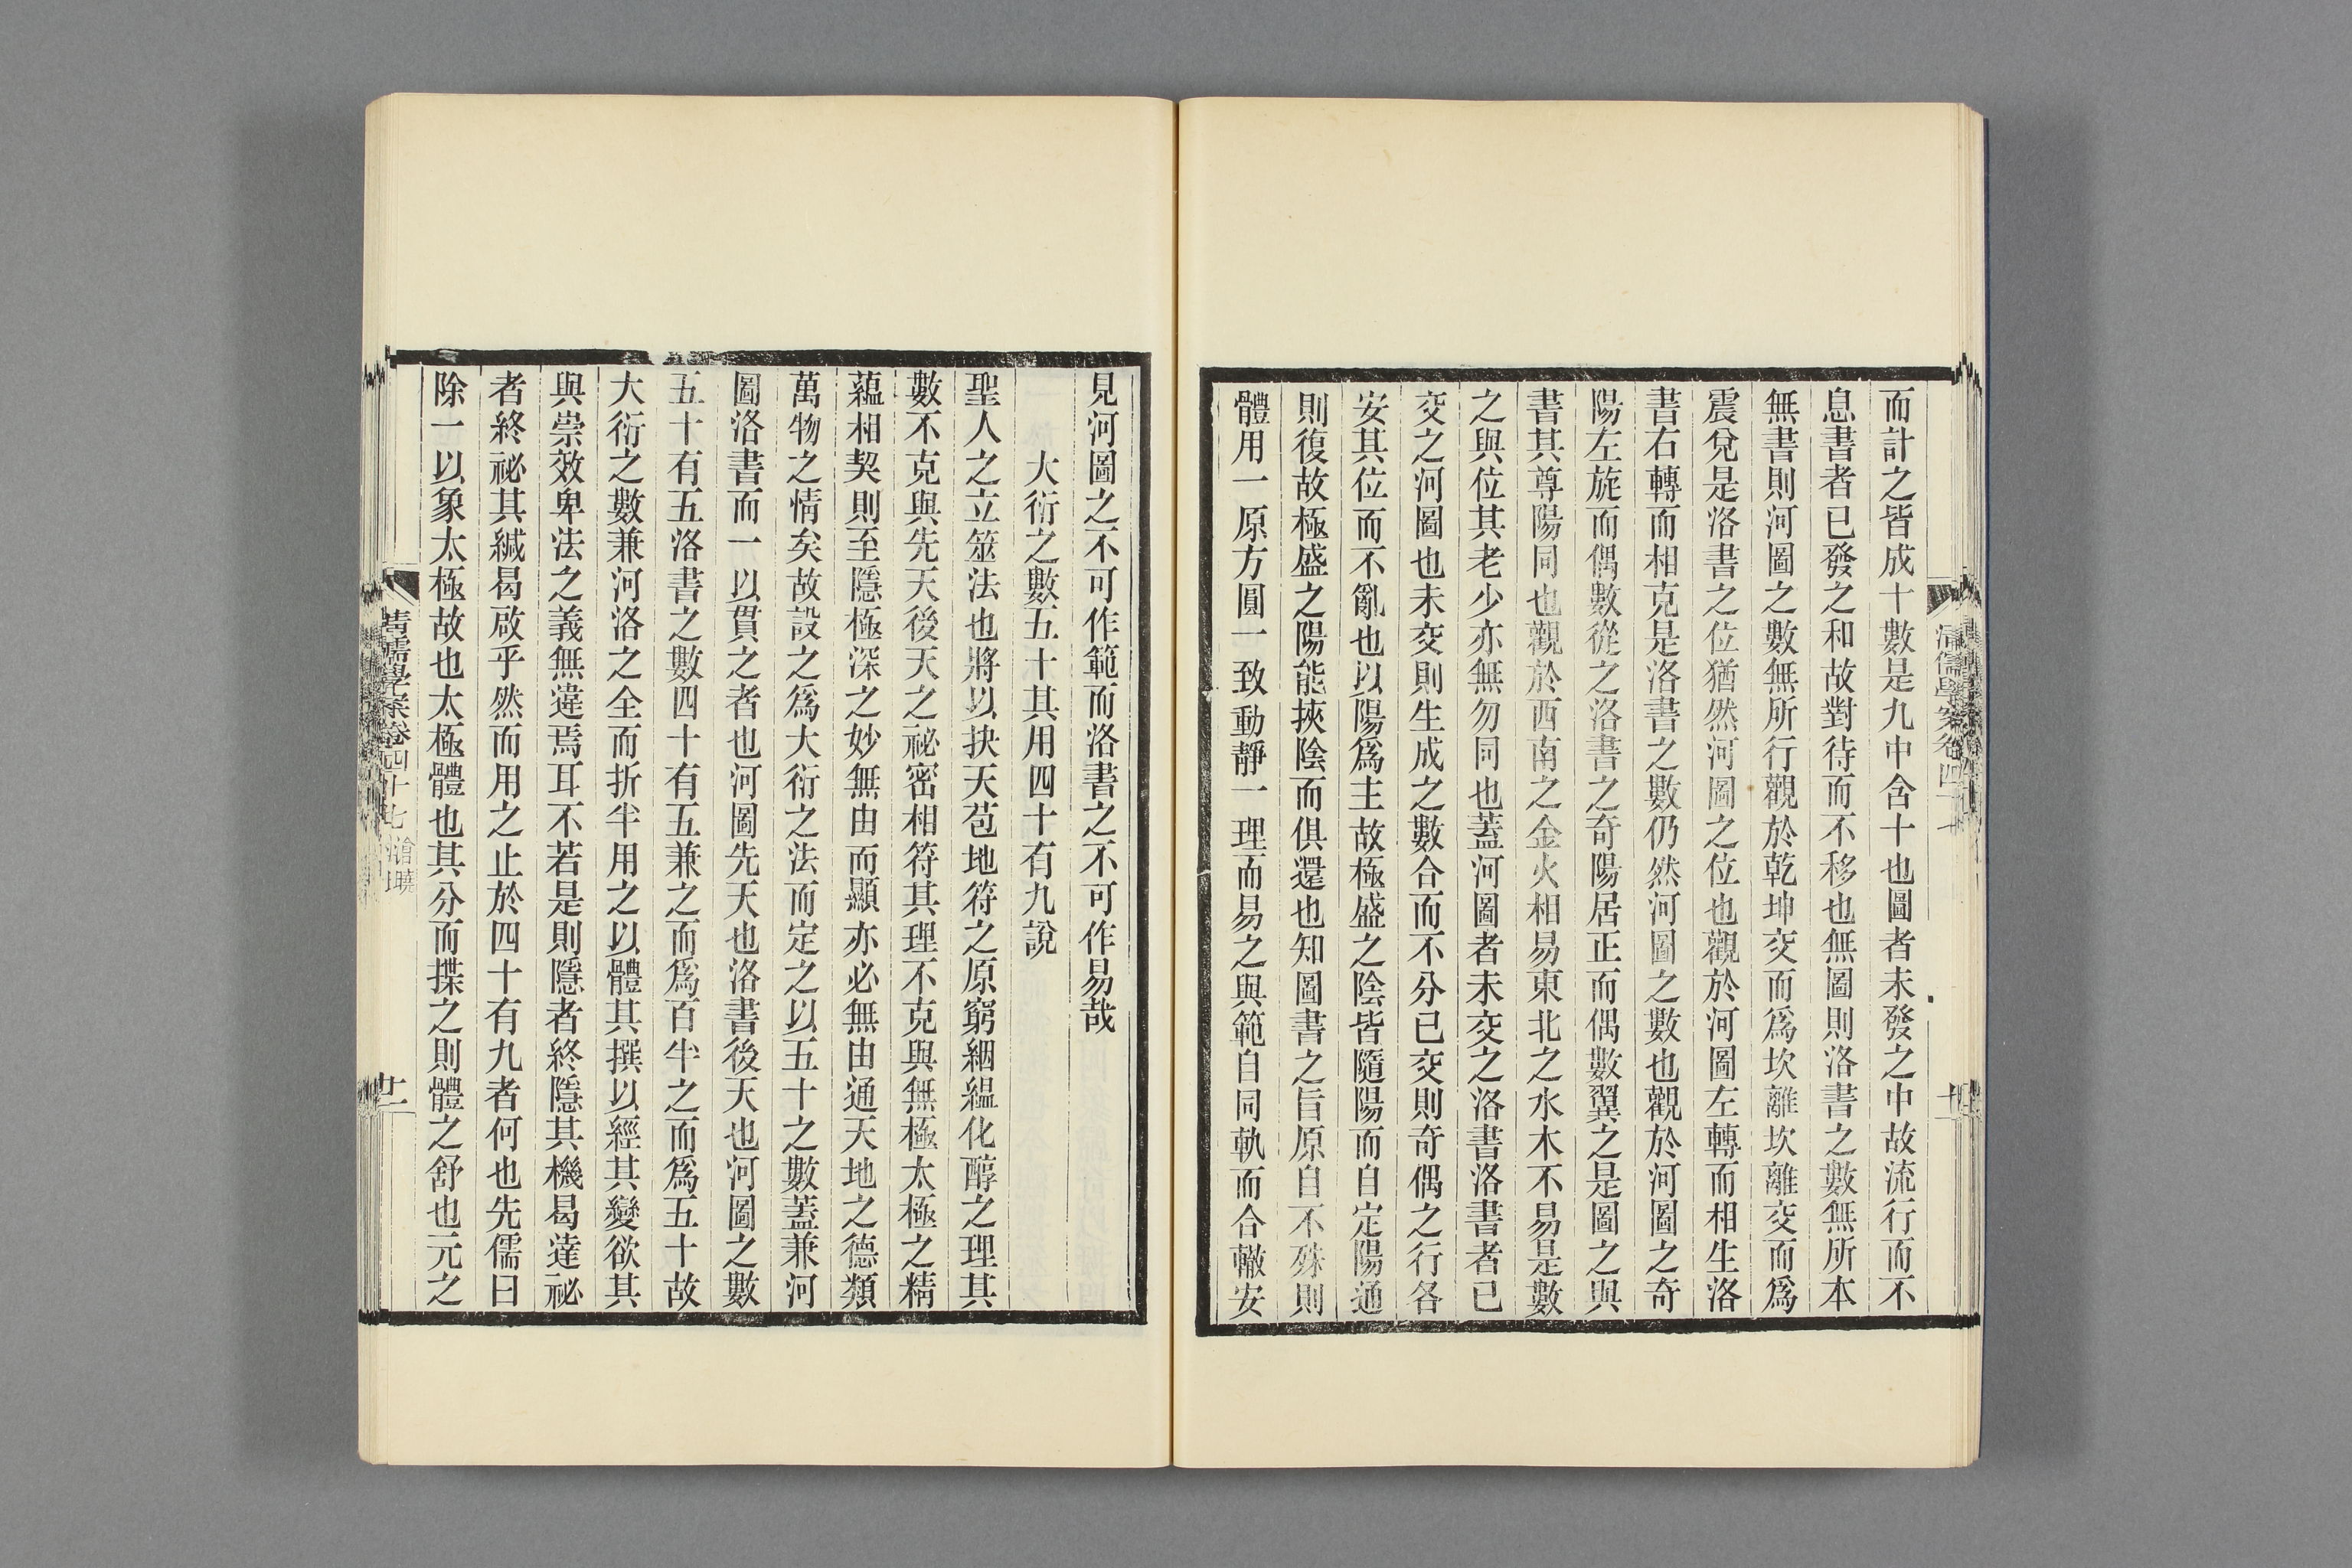 而計之皆成十數是九中含十也圖者未發之中故流行而不
息書者已發之和故對待而不移也無圖則洛書之數無所本
無書則河圖之數無所行觀於乾坤交而爲坎離坎離交而爲
震兌是洛書之位猶然河圖之位也觀於河圖左轉而相生洛
書右轉而相克是洛書之數仍然河圖之數也觀於河圖之奇
陽左旋而偶數從之洛書之奇陽居正而偶數翼之是圖之與
書其尊陽同也觀於西南之金火相易東北之水木不易是數
之與位其老少亦無勿同也蓋河圖者未交之洛書洛書者已
交之河圖也未交則生成之數合而不分已交則奇偶之行各
安其位而不亂也以陽爲主故極盛之陰皆隨陽而自定陽通
則復故極盛之陽能挾陰而俱還也知圖書之旨原自不殊則
體用一原方圓一致動靜一理而易之與範自同軌而合轍安
見河圖之不可作範而洛書之不可作易哉
大衍之數五十其用四十有九說
聖人之立筮法也將以抉天苞地符之原窮絪縕化醇之理其
數不克與先天後天之祕密相符其理不克與無極太極之精
蘊相契則至隱極深之妙無由而顯亦必無由通天地之德類
萬物之情矣故設之爲大衍之法而定之以五十之數蓋兼河
圖洛書而一以貫之者也河圖先天也洛書後天也河圖之數
五十有五洛書之數四十有五兼之而爲百半之而爲五十故
大衍之數兼河洛之全而折半用之以體其撰以經其變欲其
與崇效卑法之義無違焉耳不若是則隱者終隱其機曷達祕
者終祕其緘曷啟乎然而用之止於四十有九者何也先儒曰
除一以象太極故也太極體也其分而揲之則體之舒也元之
清儒學案卷四十七 滄曉
廿一